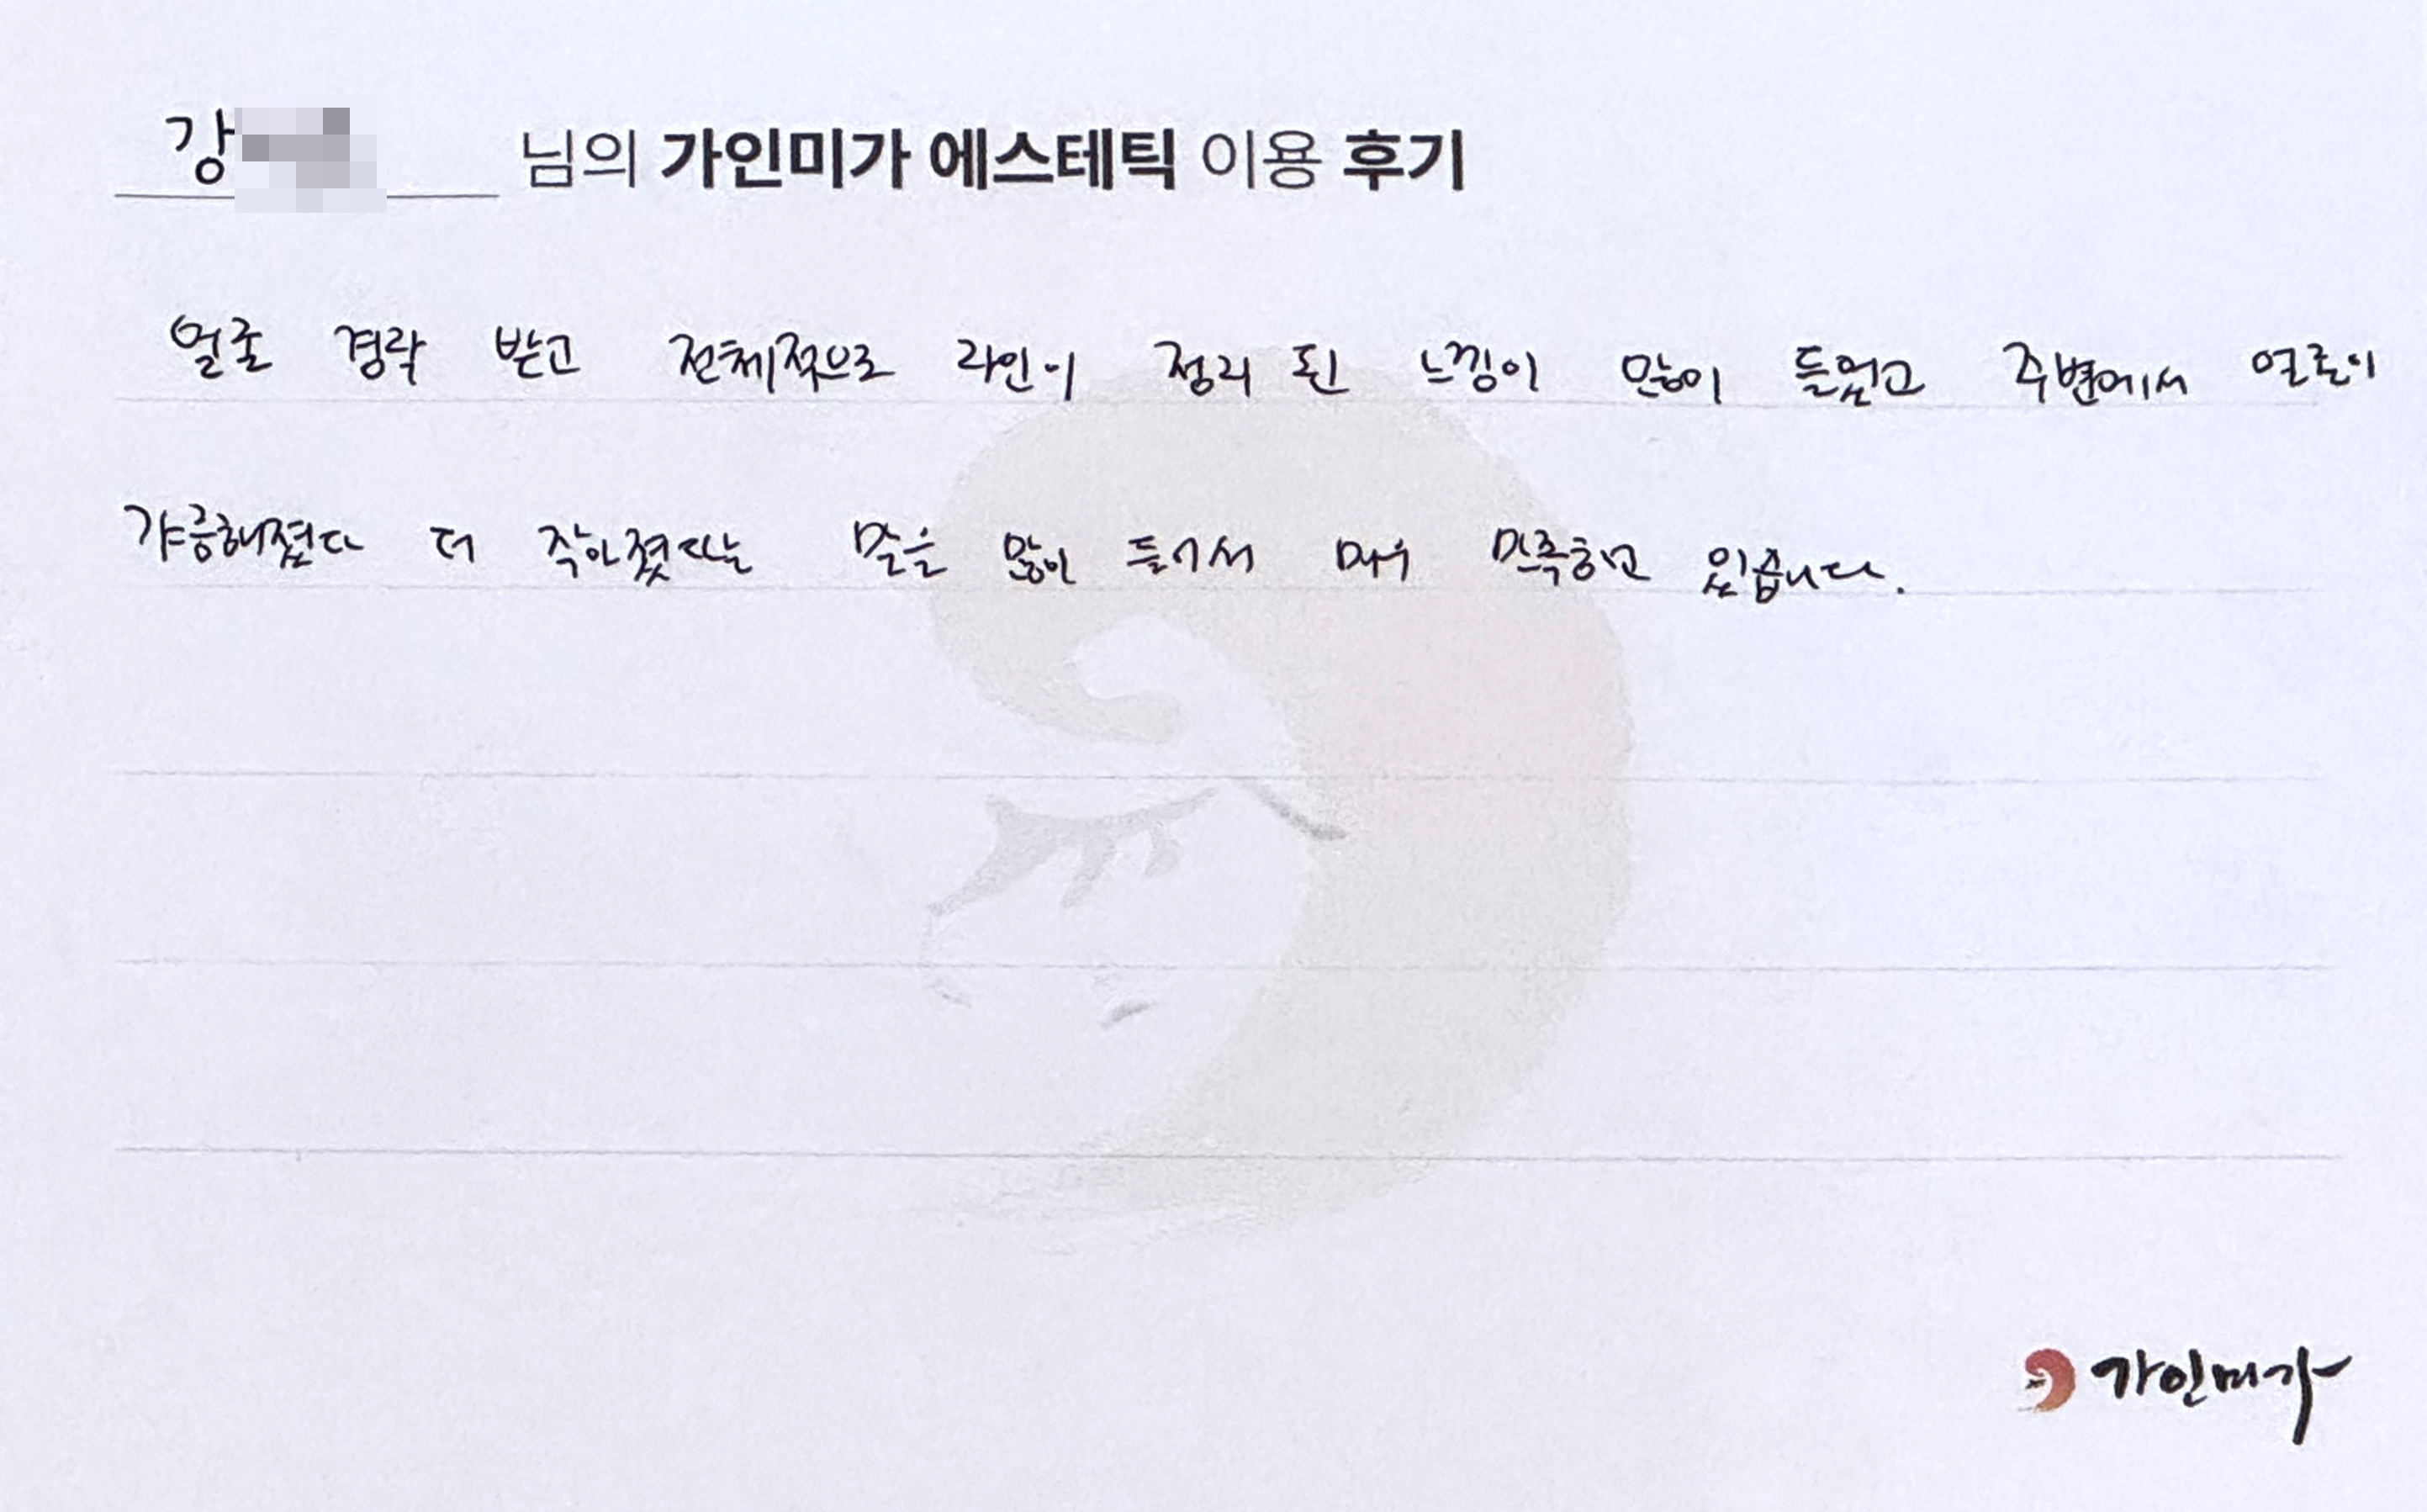 강 님의 가인미가 에스테틱 이용 후기
얼굴 경락 받고 전체적으로 라인이 정리 된 느낌이 많이 들었고 주변에서 얼굴이
갸름해졌다 더 작아졌다는 말을 많이 들어서 매우 만족하고 있습니다.
가인미가